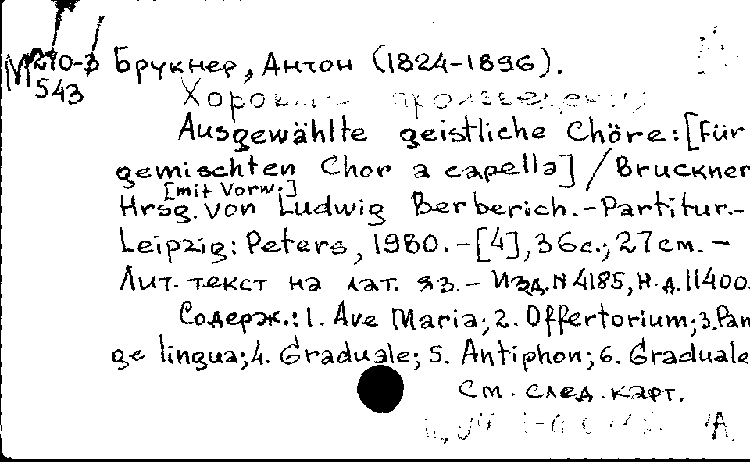 М 210-3 Брукнер, Антон (1824-1896).
543
Хоровые произведения
Ausgewählte geistliche Chöre: [Für
gemischten Chor a capella] / Bruckner
[mit Vorw.]
Hrsg. von Ludwig Berberich. - Partitur. -
Leipzig: Peters, 1980. - [4], 36 с.; 27 см. -
Лит. текст на лат. яз. - Изд. N 4185, Н.д. 11400.
Содерж.: 1. Ave Maria; 2. Offertorium; 3. Pan
ge lingua; 4. Graduale; 5. Antiphon; 6. Graduale
См. след. карт.